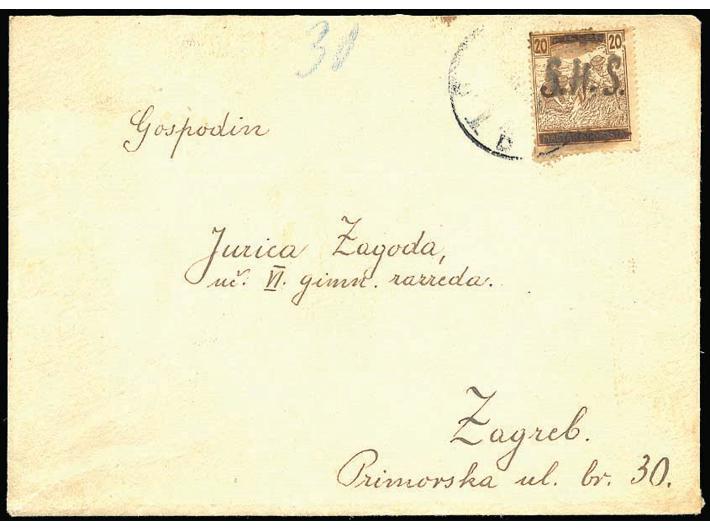 30
20 20
S.H.S.
Gospodin
Jurica Zagoda,
uč. VI. gimn. razreda.
Zagreb.
Primorska ul. br. 30.